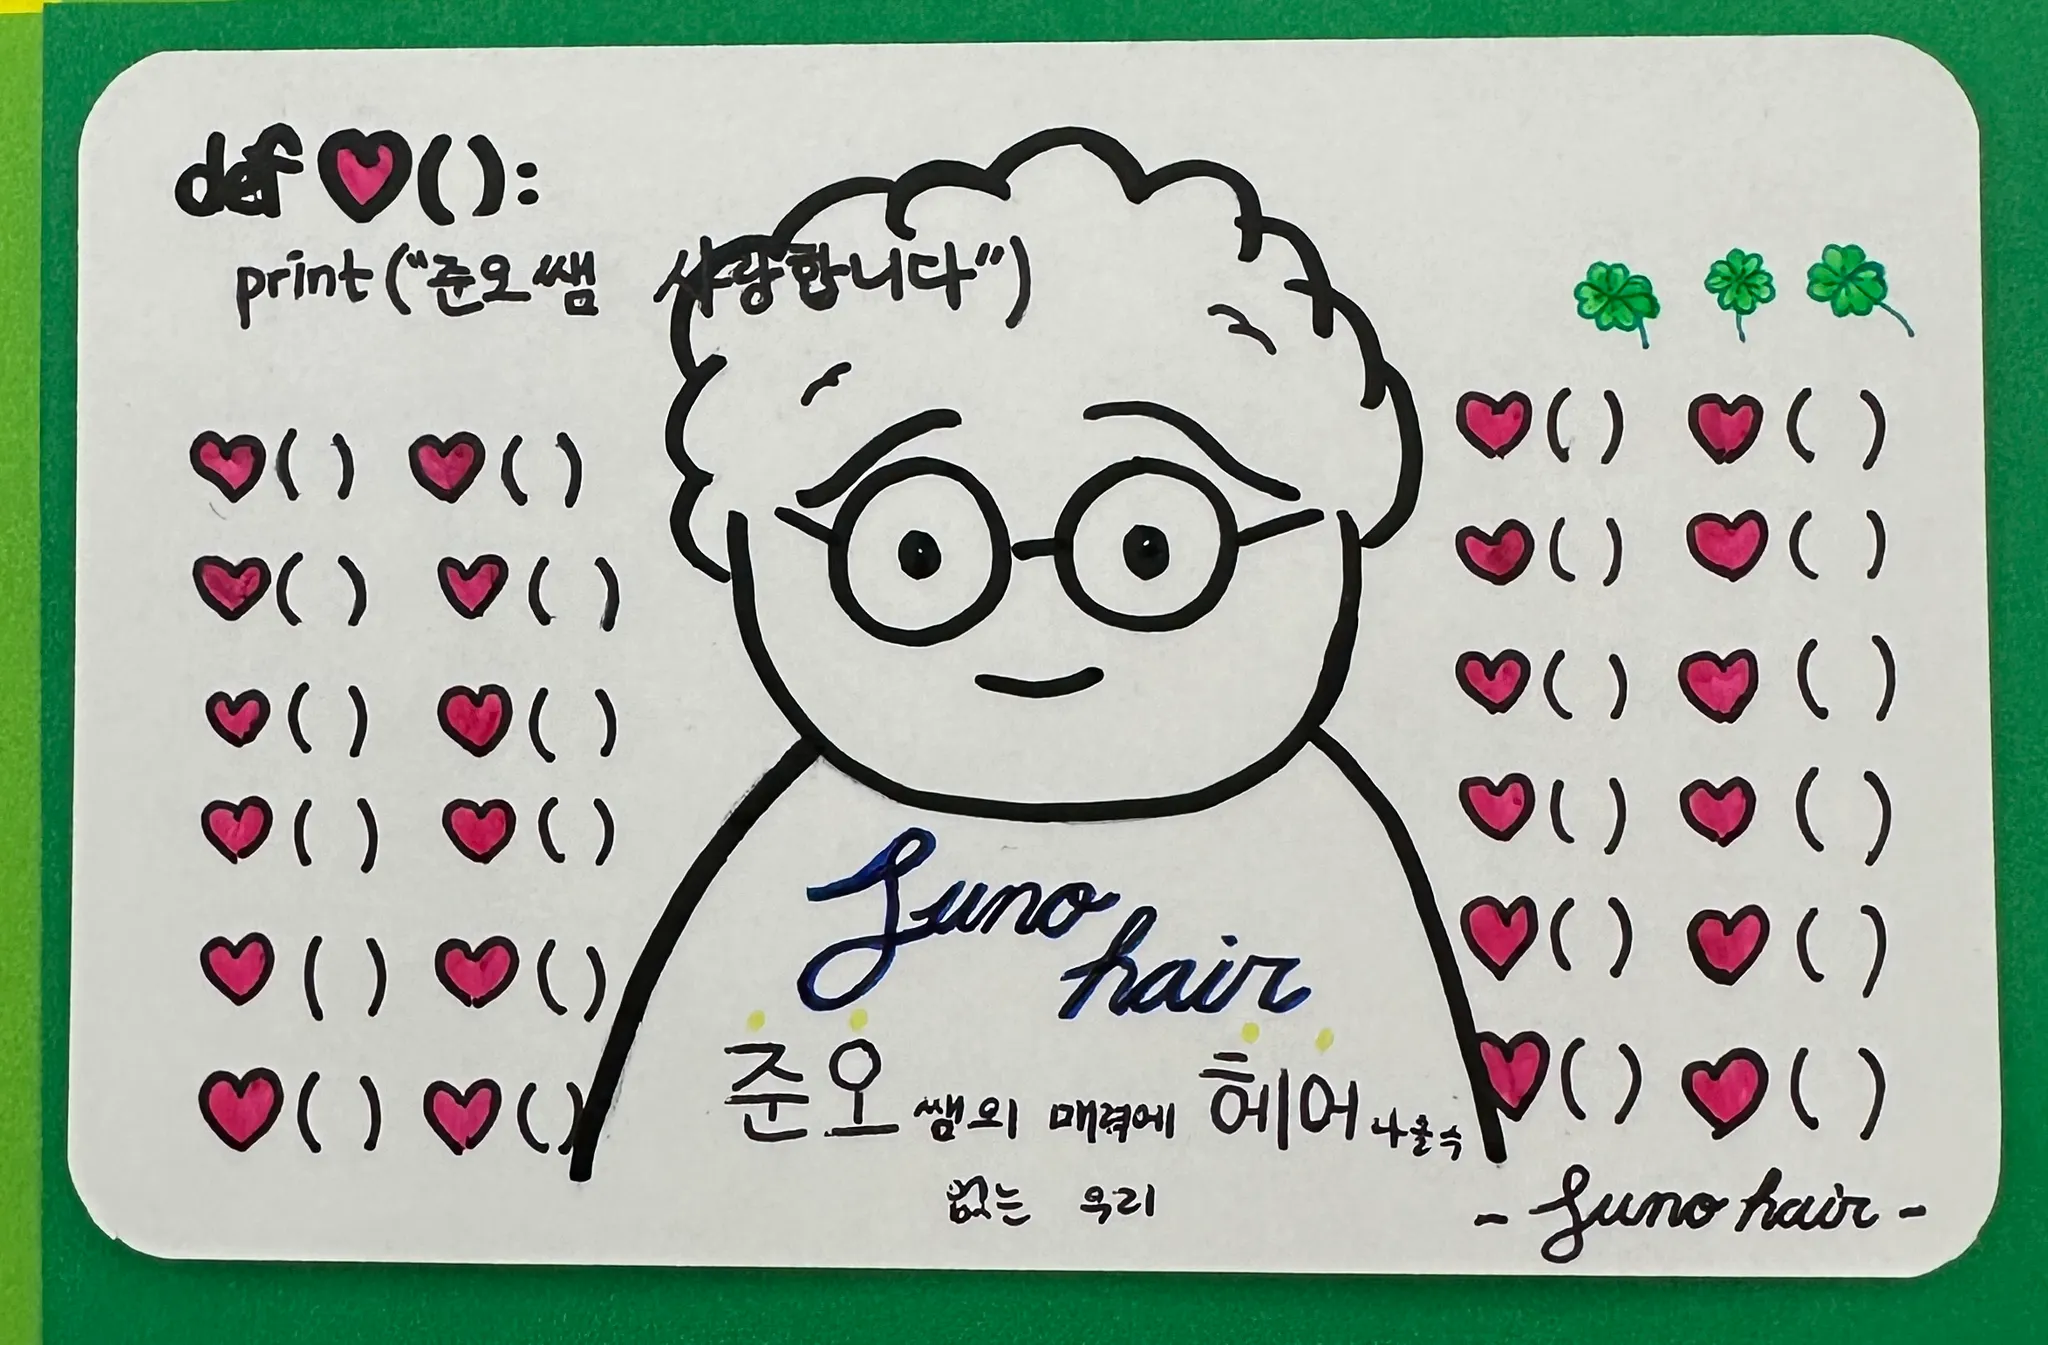 def ♥():
print("준오쌤 사랑합니다")
♥() ♥() ♥() ♥()
♥() ♥() ♥() ♥()
♥() ♥() ♥() ♥()
♥() ♥() ♥() ♥()
♥() ♥() ♥() ♥()
♥() ♥() ♥() ♥()
Juno
hair
준오쌤의 매력에 헤어나올수
없는 우리
- Juno hair -